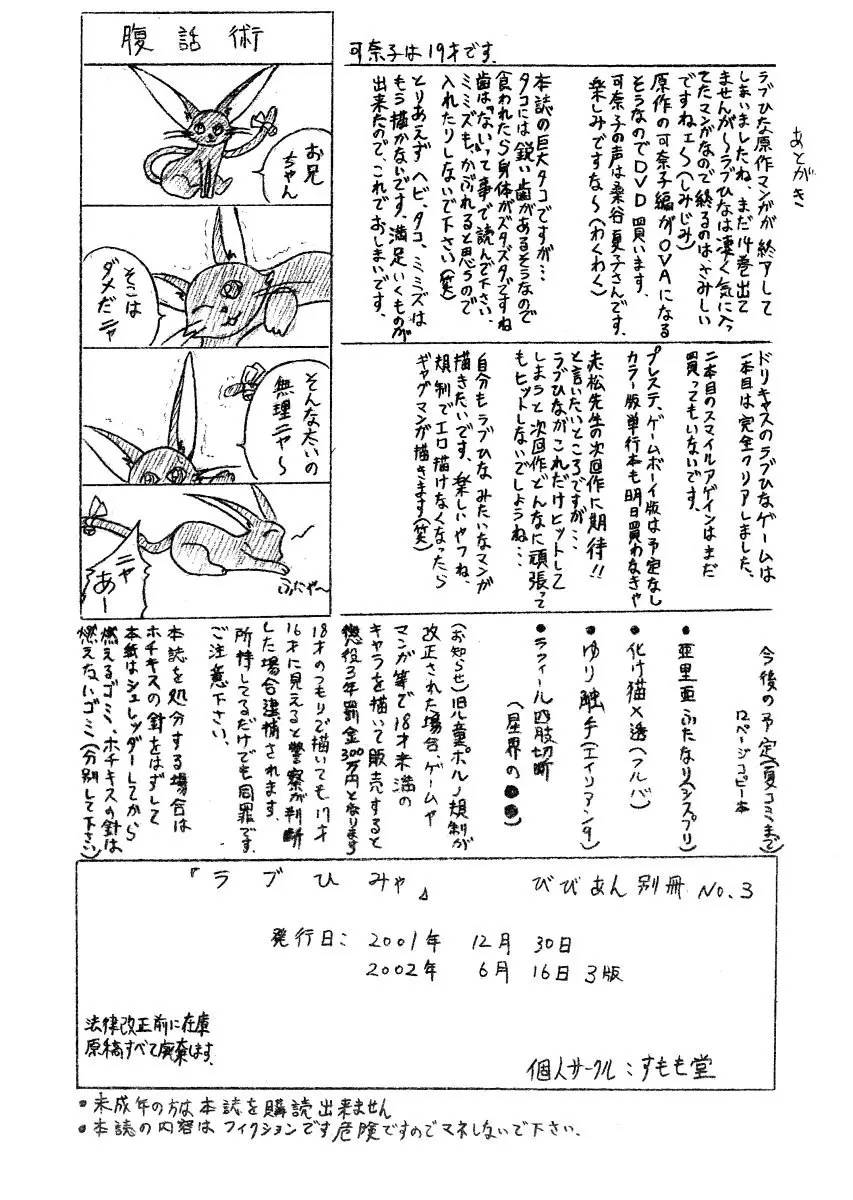 あとがき
ラブひな原作マンガが終アして
しまいましたね、まだ14巻出て
ませんが〜ラブひなは凄く気に入っ
てたマンガなので終るのは、さみしい
ですねェ〜(しみじみ)
原作の可奈子編がOVAになる
そうなのでDVD買います、
可奈子の声は桑谷夏子さんです、
楽しみですな〜(わくわく)
可奈子は19才です、
本誌の巨大タコですが…
タコには鋭い歯があるそうなので
食われたら身体がズタズタですね
歯は「ない」って事で読んで下さい、
ミミズも、かぶれると思うので
入れたりしないで下さい(笑)
とりあえずヘビ、タコ、ミミズは
もう描かないです、満足いくものが
出来たので、これでおしまいです、
ドリキャスのラブひなゲームは
一本目は完全クリアしました、
二本目のスマイルアゲインはまだ
買ってもいないです、
プレステ、ゲームボーイ版は予定なし
カラー版単行本も明日買わなきゃ
赤松先生の次回作に期待!!
と言いたいところですが…
ラブひながこれだけヒットして
しまうと次回作どんなに頑張って
もヒットしないでしょうね…
自分もラブひなみたいなマンガ
描きたいです、楽しいやつね、
規制でエロ描けなくなったら
ギャグマンガ描きます(笑)
今後の予定(夏コミまで)
12ページコピー本
●亜里亜ふたなり(シスプリ)
●化け猫×透(フルバ)
●ゆり触手(エイリアン9)
●ラフィール四肢切断
(星界の●●)
(お知らせ)旧児童ポルノ規制が
改正された場合、ゲームや
マンガ等で18才未満の
キャラを描いて販売すると
懲役3年罰金300万円となります
18才のつもりで描いても17才
16才に見えると警察が判断
した場合逮捕されます、
所持してるだけでも同罪です、
ご注意下さい、
本誌を処分する場合は
ホチキスの針をはずして
本紙はシュレッダーしてから
燃えるゴミ、ホチキスの針は
燃えないゴミ(分別して下さい)
腹話術
お兄
ちゃん
そこは
ダメだニャ
そんな太いの
無理ニャ〜
ニャ
あー
ふにゃ〜
『ラブひみゃ』 びびあん別冊 No.3
発行日: 2001年 12月 30日
2002年 6月 16日 3版
法律改正前に在庫
原稿すべて廃棄します、
個人サークル:すもも堂
●未成年の方は本誌を購読出来ません
●本誌の内容はフィクションです危険ですのでマネしないで下さい、